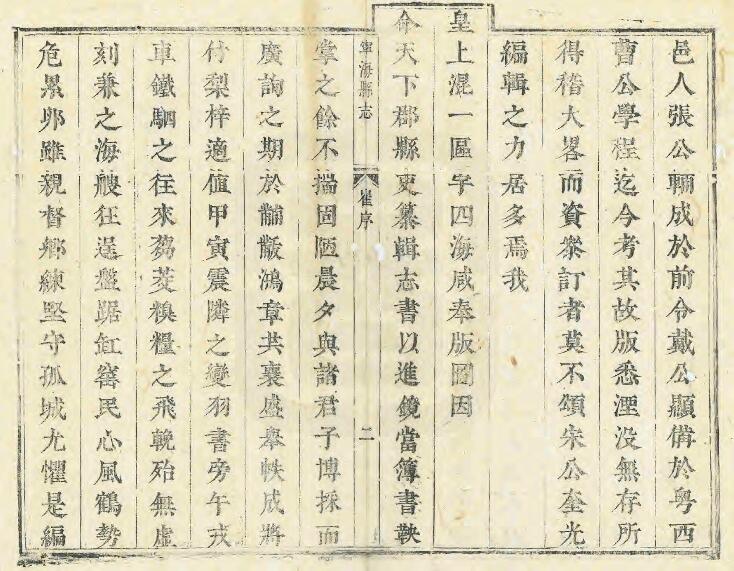 邑人張公輛成於前令戴公顯備於粵西
曹公學程迄今考其故版悉湮没無存所
得稽大畧而資衆訂者莫不頌宋公奎光
編輯之力居多焉我
皇上混一區宇四海咸奉版圖因
命天下郡縣更纂輯志書以進鏡當簿書鞅
寧海縣志
崔序
二
掌之餘不揣固陋晨夕與諸君子博採而
廣詢之期於黼黻鴻章共襄盛舉帙成將
付梨梓適值甲寅震隣之變羽書旁午戎
車鐵駟之往來芻茭糗糧之飛輓殆無虛
刻兼之海艘狂逞盤踞缸窰民心風鶴勢
危累卵雖親督鄉練堅守孤城尤懼是編